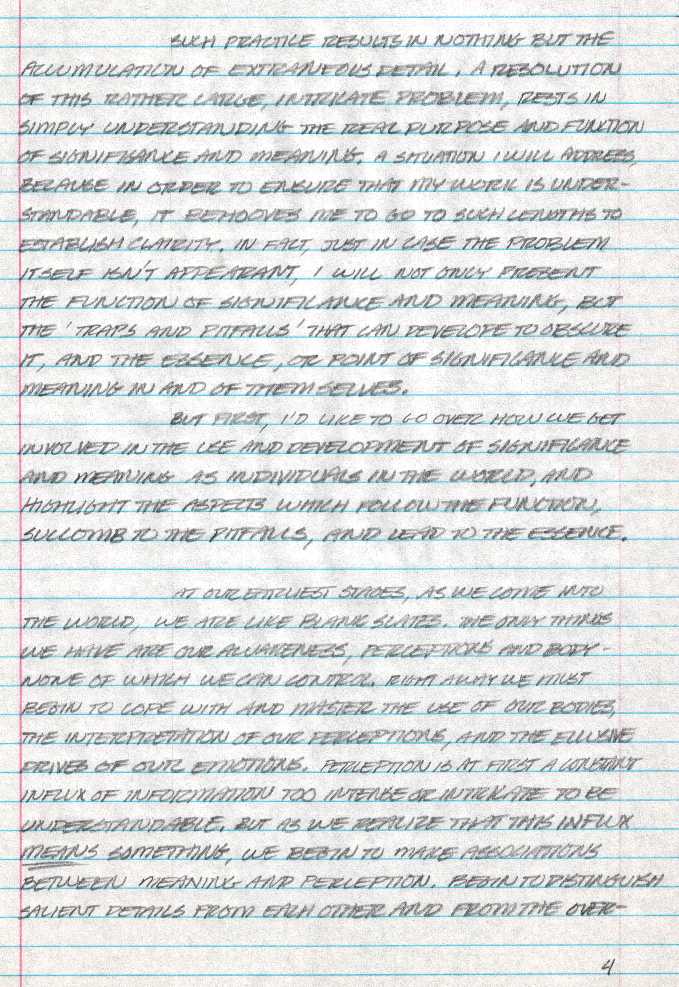 SUCH PRACTICE RESULTS IN NOTHING BUT THE
ACCUMULATION OF EXTRANEOUS DETAIL. A RESOLUTION
OF THIS RATHER LARGE, INTRICATE PROBLEM, RESTS IN
SIMPLY UNDERSTANDING THE REAL PURPOSE AND FUNCTION
OF SIGNIFIGANCE AND MEANING. A SITUATION I WILL ADDRESS,
BECAUSE IN ORDER TO ENSURE THAT MY WORK IS UNDER-
STANDABLE, IT BEHOOVES ME TO GO TO SUCH LENGTHS TO
ESTABLISH CLARITY. IN FACT, JUST IN CASE THE PROBLEM
ITSELF ISN'T APPEARANT, I WILL NOT ONLY PRESENT
THE FUNCTION OF SIGNIFIGANCE AND MEANING, BUT
THE 'TRAPS AND PITFALLS' THAT CAN DEVELOPE TO OBSCURE
IT, AND THE ESSENCE, OR POINT OF SIGNIFIGANCE AND
MEANING IN AND OF THEMSELVES.
BUT FIRST, I'D LIKE TO GO OVER HOW WE GET
INVOLVED IN THE USE AND DEVELOPMENT OF SIGNIFIGANCE
AND MEANING AS INDIVIDUALS IN THE WORLD, AND
HIGHLIGHT THE ASPECTS WHICH FOLLOW THE FUNCTION,
SUCCOMB TO THE PITFALLS, AND LEAD TO THE ESSENCE.
AT OUR EARLIEST STAGES, AS WE COME INTO
THE WORLD, WE ARE LIKE BLANK SLATES. THE ONLY THINGS
WE HAVE ARE OUR AWARENESS, PERCEPTIONS AND BODY-
NONE OF WHICH WE CAN CONTROL. RIGHT AWAY WE MUST
BEGIN TO COPE WITH AND MASTER THE USE OF OUR BODIES,
THE INTERPRETATION OF OUR PERCEPTIONS, AND THE ELLUSIVE
DRIVES OF OUR EMOTIONS. PERCEPTION IS AT FIRST A CONSTANT
INFLUX OF INFORMATION TOO INTENSE OR INTRICATE TO BE
UNDERSTANDABLE. BUT AS WE REALIZE THAT THIS INFLUX
MEANS SOMETHING, WE BEGIN TO MAKE ASSOCIATIONS
BETWEEN MEANING AND PERCEPTION. BEGIN TO DISTINGUISH
SALIENT DETAILS FROM EACH OTHER AND FROM THE OVER-
4